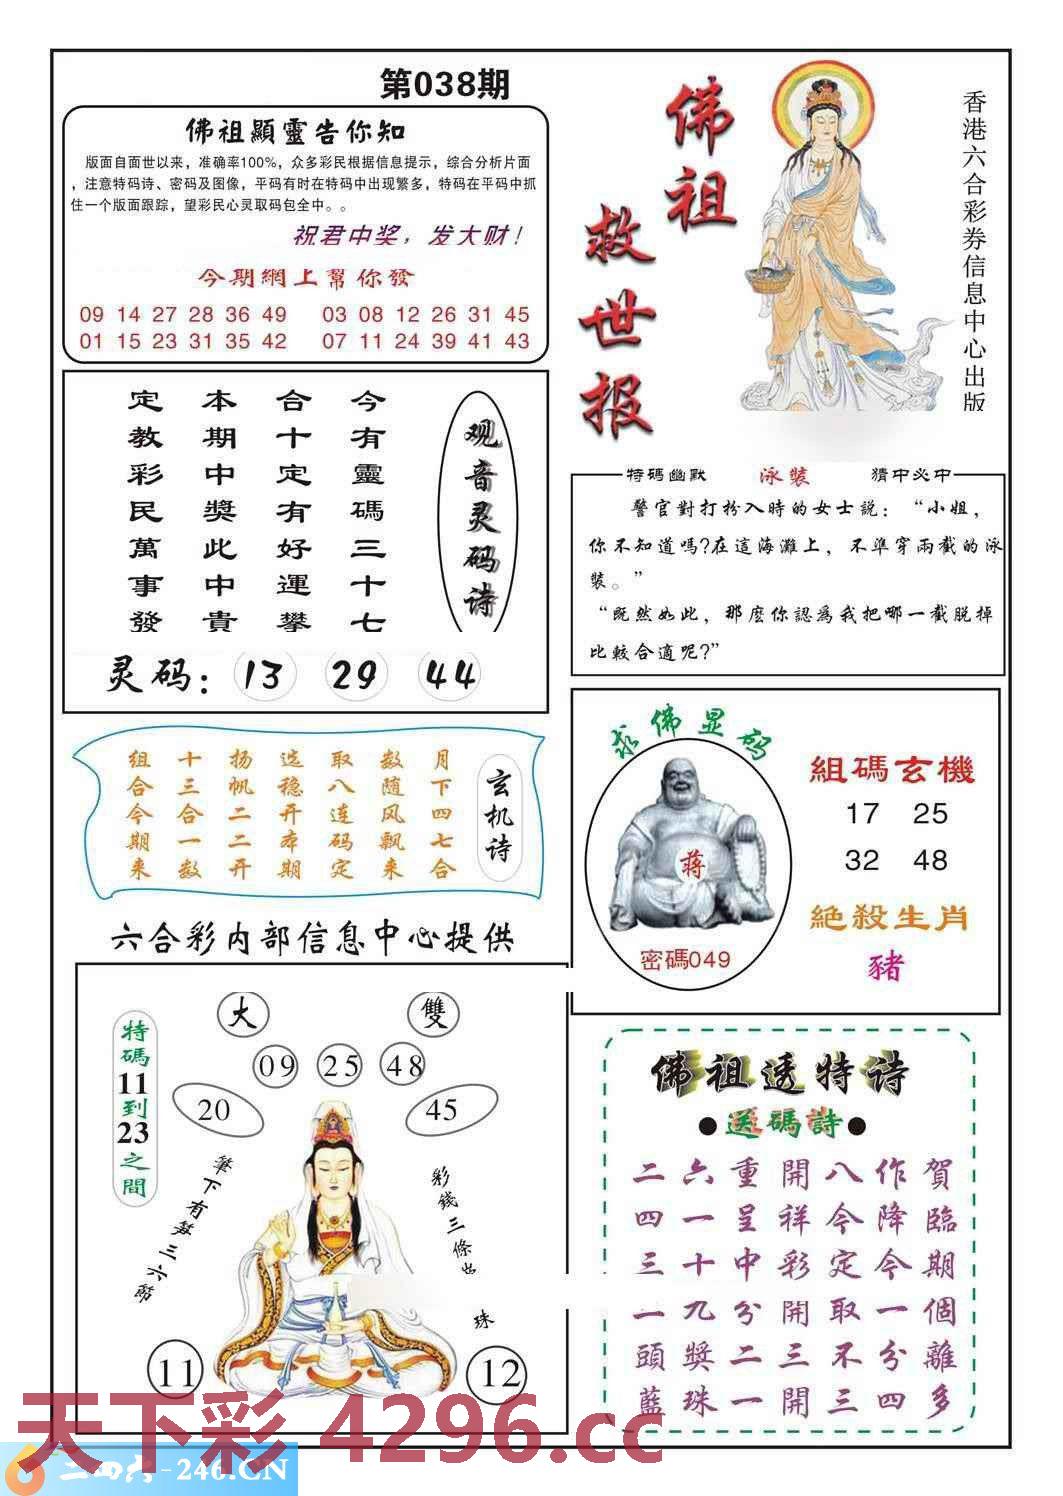 第038期
佛祖顯靈告你知
版面自面世以来，准确率100%，众多彩民根据信息提示，综合分析片面
，注意特码诗、密码及图像，平码有时在特码中出现繁多，特码在平码中抓
住一个版面跟踪，望彩民心灵取码包全中。。
祝君中奖，发大财！
今期網上幫你發
09 14 27 28 36 49 03 08 12 26 31 45
01 15 23 31 35 42 07 11 24 39 41 43
佛祖
救世报
香港六合彩券信息中心出版
观音灵码诗
今有靈碼三十七
合十定有好運攀
本期中獎此中貴
定教彩民萬事發
灵码：13 29 44
特碼幽默 泳裝 猜中必中
警官對打扮入時的女士説：“小姐，
你不知道嗎?在這海灘上，不準穿兩截的泳
裝。”
“既然如此，那麽你認爲我把哪一截脱掉
比較合適呢?”
玄机诗
月下四七合
数随风飘来
取八连码定
选稳开本期
扬帆二二开
十三合一数
组合今期来
求佛显码
蒋
密碼049
組碼玄機
17 25
32 48
絕殺生肖
豬
六合彩内部信息中心提供
特碼11到23之間
大 雙
09 25 48
20 45
筆下有算三六節
彩錢三條
珠
11 12
佛祖透特诗
●送碼詩●
賀臨期個離多
作降今一分四
八今定取不三
開祥彩開三開
重呈中分二一
六一十九獎珠
二四三一頭藍
天下彩 4296.cc
二四六-246.CN